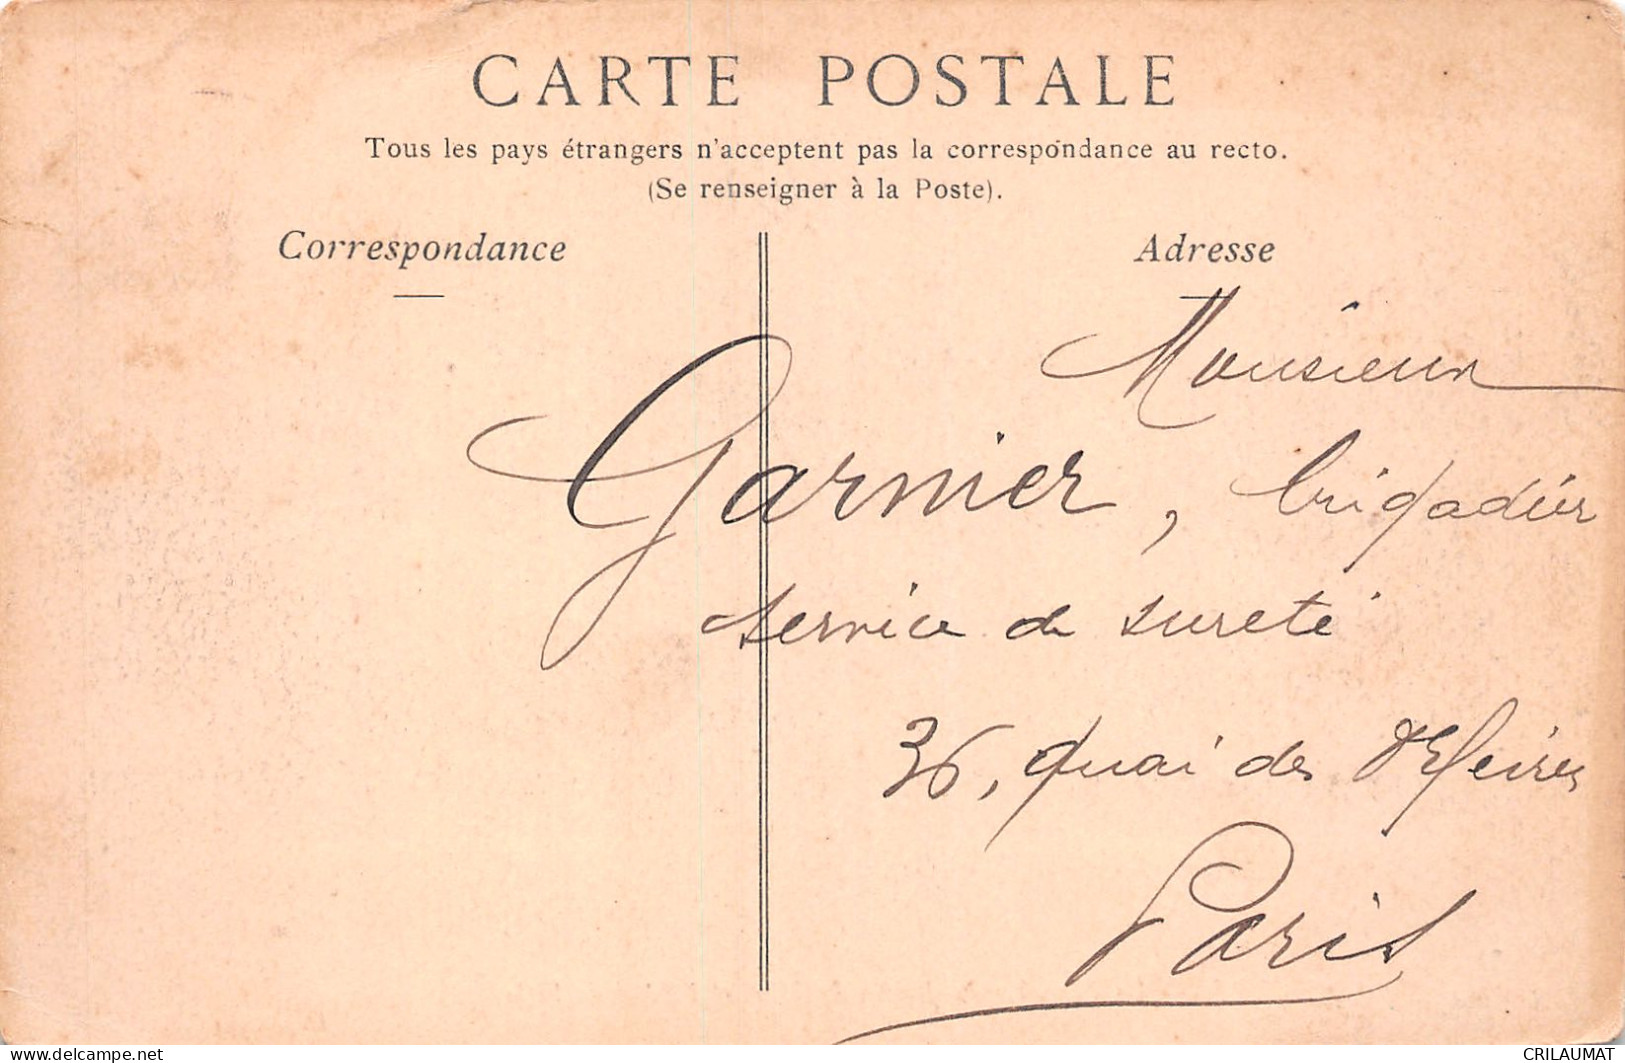 CARTE POSTALE
Tous les pays étrangers n'acceptent pas la correspondance au recto.
(Se renseigner à la Poste).
Correspondance
Adresse
Monsieur
Garnier, brigadier
service de sureté
36, Quai des
Paris
www.delcampe.net
CRILAUMAT